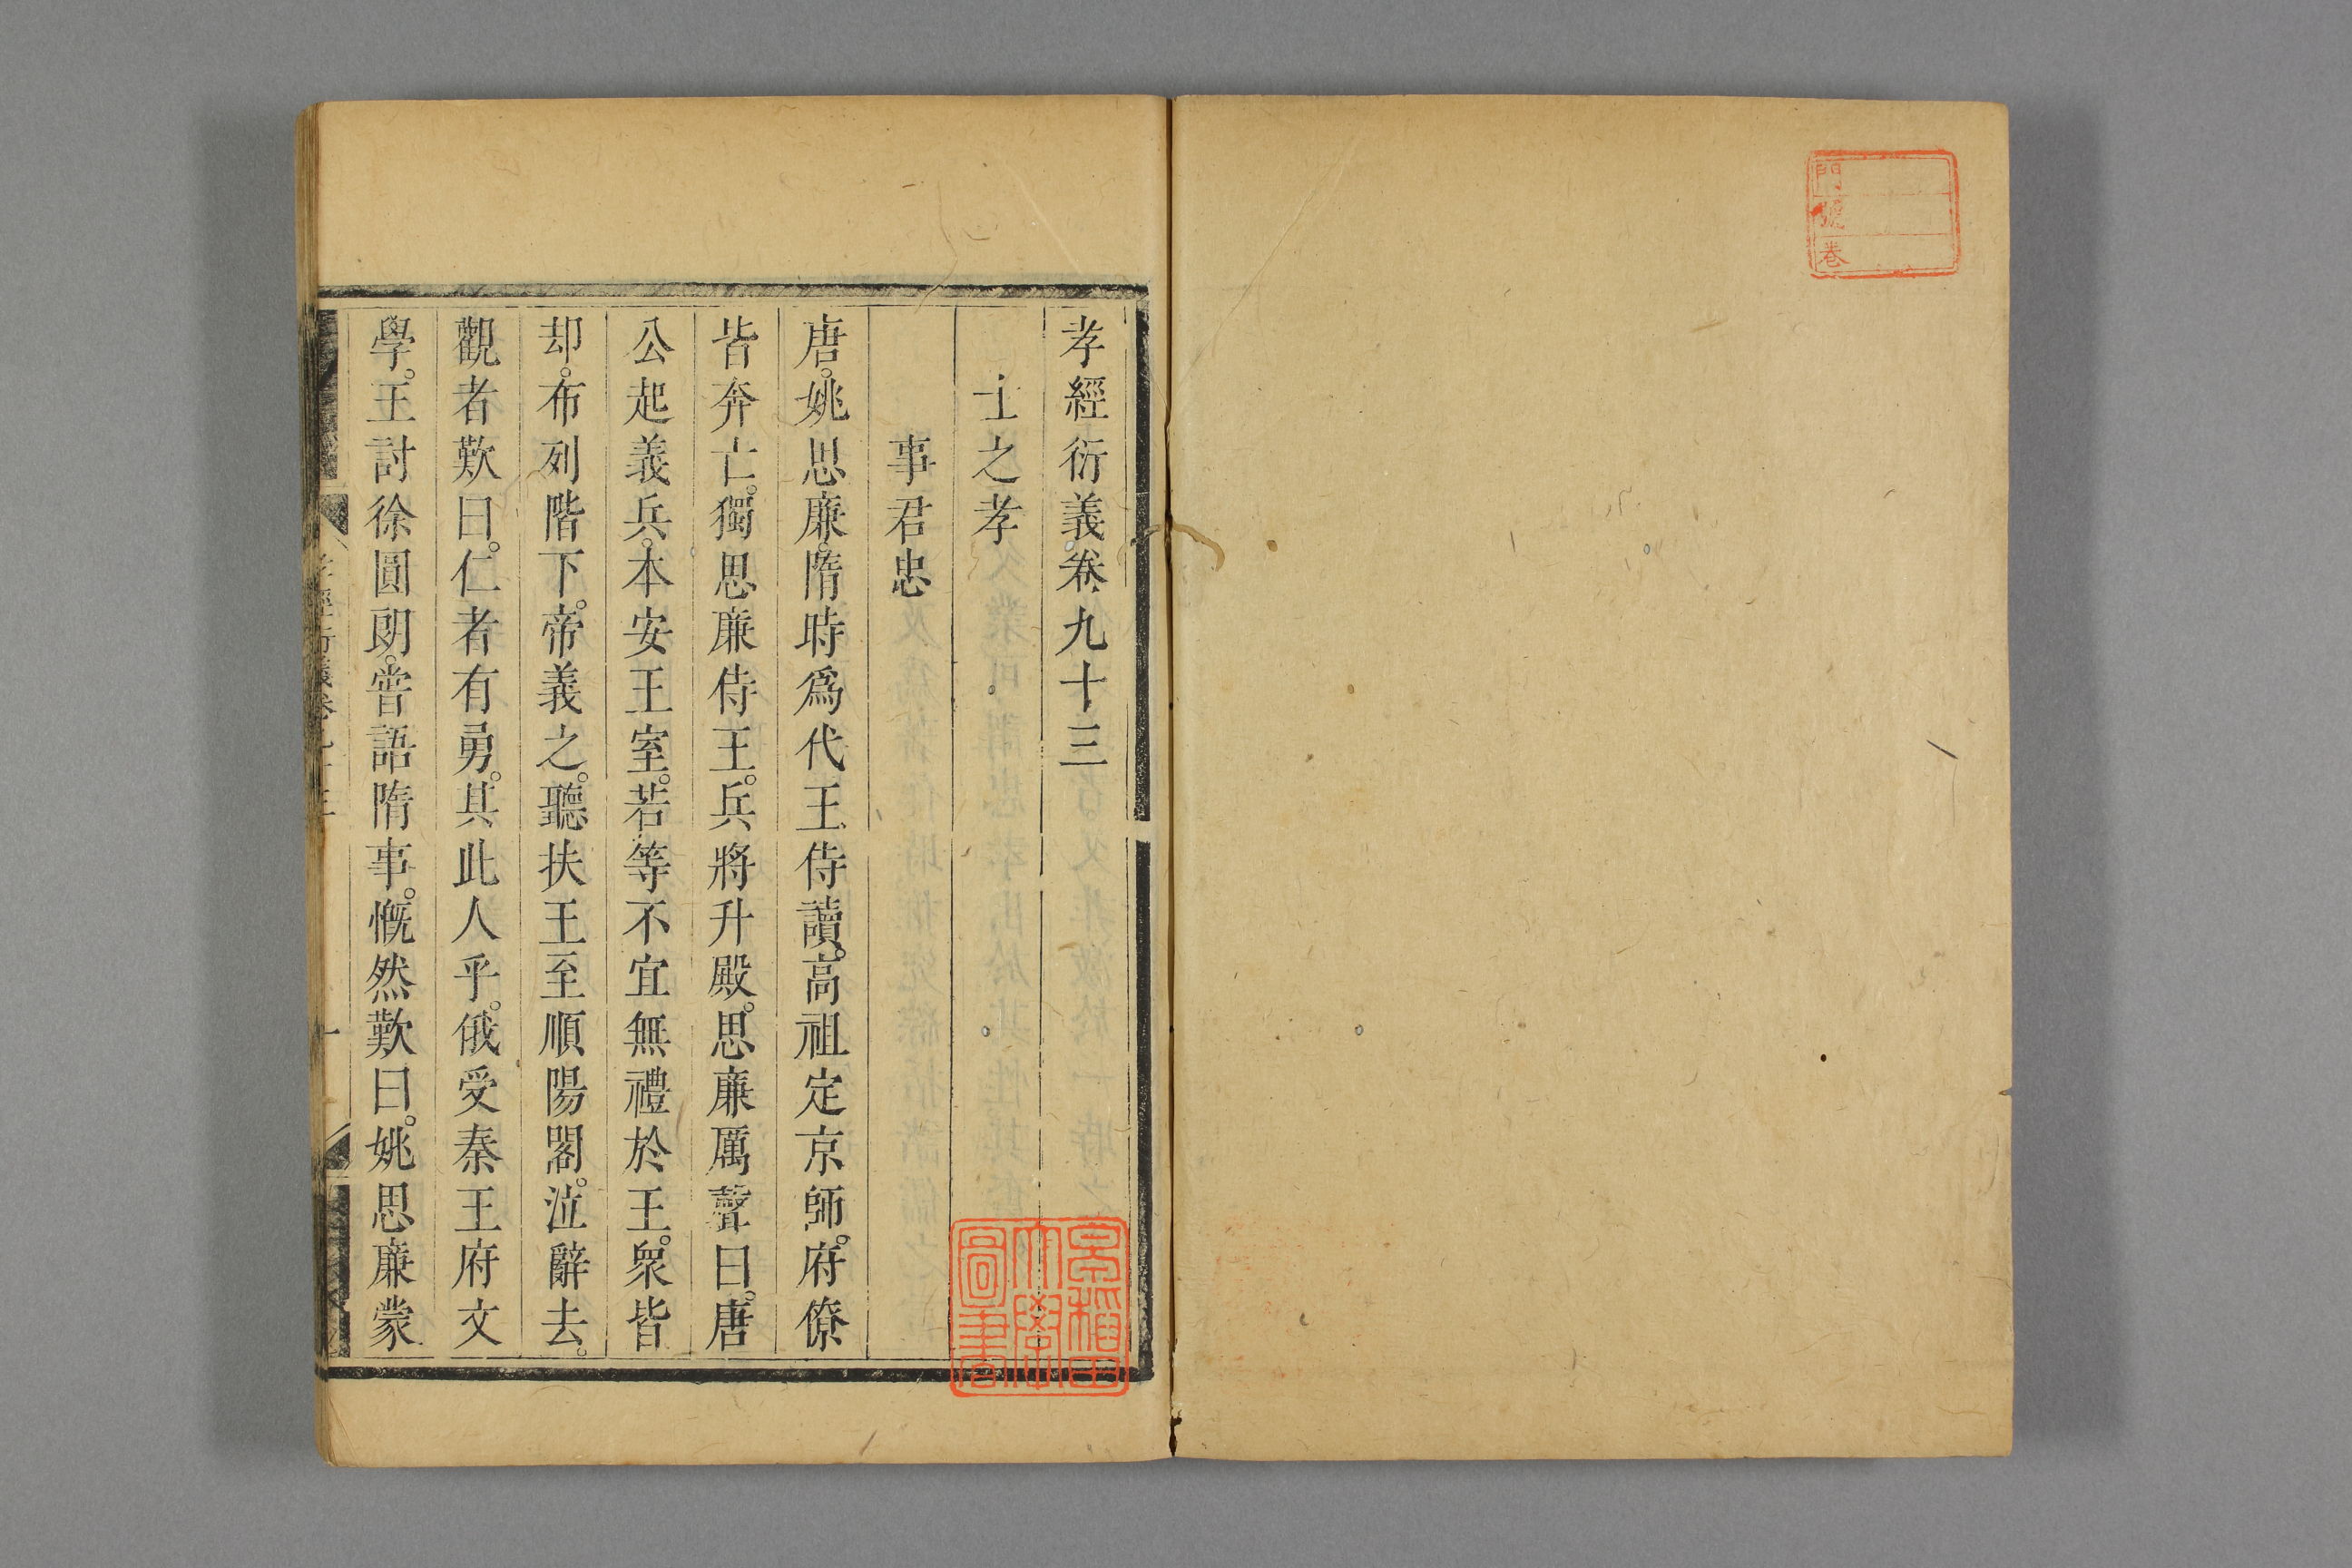 門
號
卷
孝經衍義卷九十三
士之孝
事君忠
唐。姚思廉。隋時爲代王侍讀。高祖定京師。府僚
皆奔亡。獨思廉侍王。兵將升殿。思廉厲聲曰。唐
公起義兵。本安王室。若等不宜無禮於王。衆皆
却。布列階下。帝義之。聽扶王至順陽閣。泣辭去。
觀者歎曰。仁者有勇。其此人乎。俄受秦王府文
學。王討徐圓朗。嘗語隋事。慨然歎曰。姚思廉蒙
孝經衍義卷九十三
一
早稻田
大學
圖書